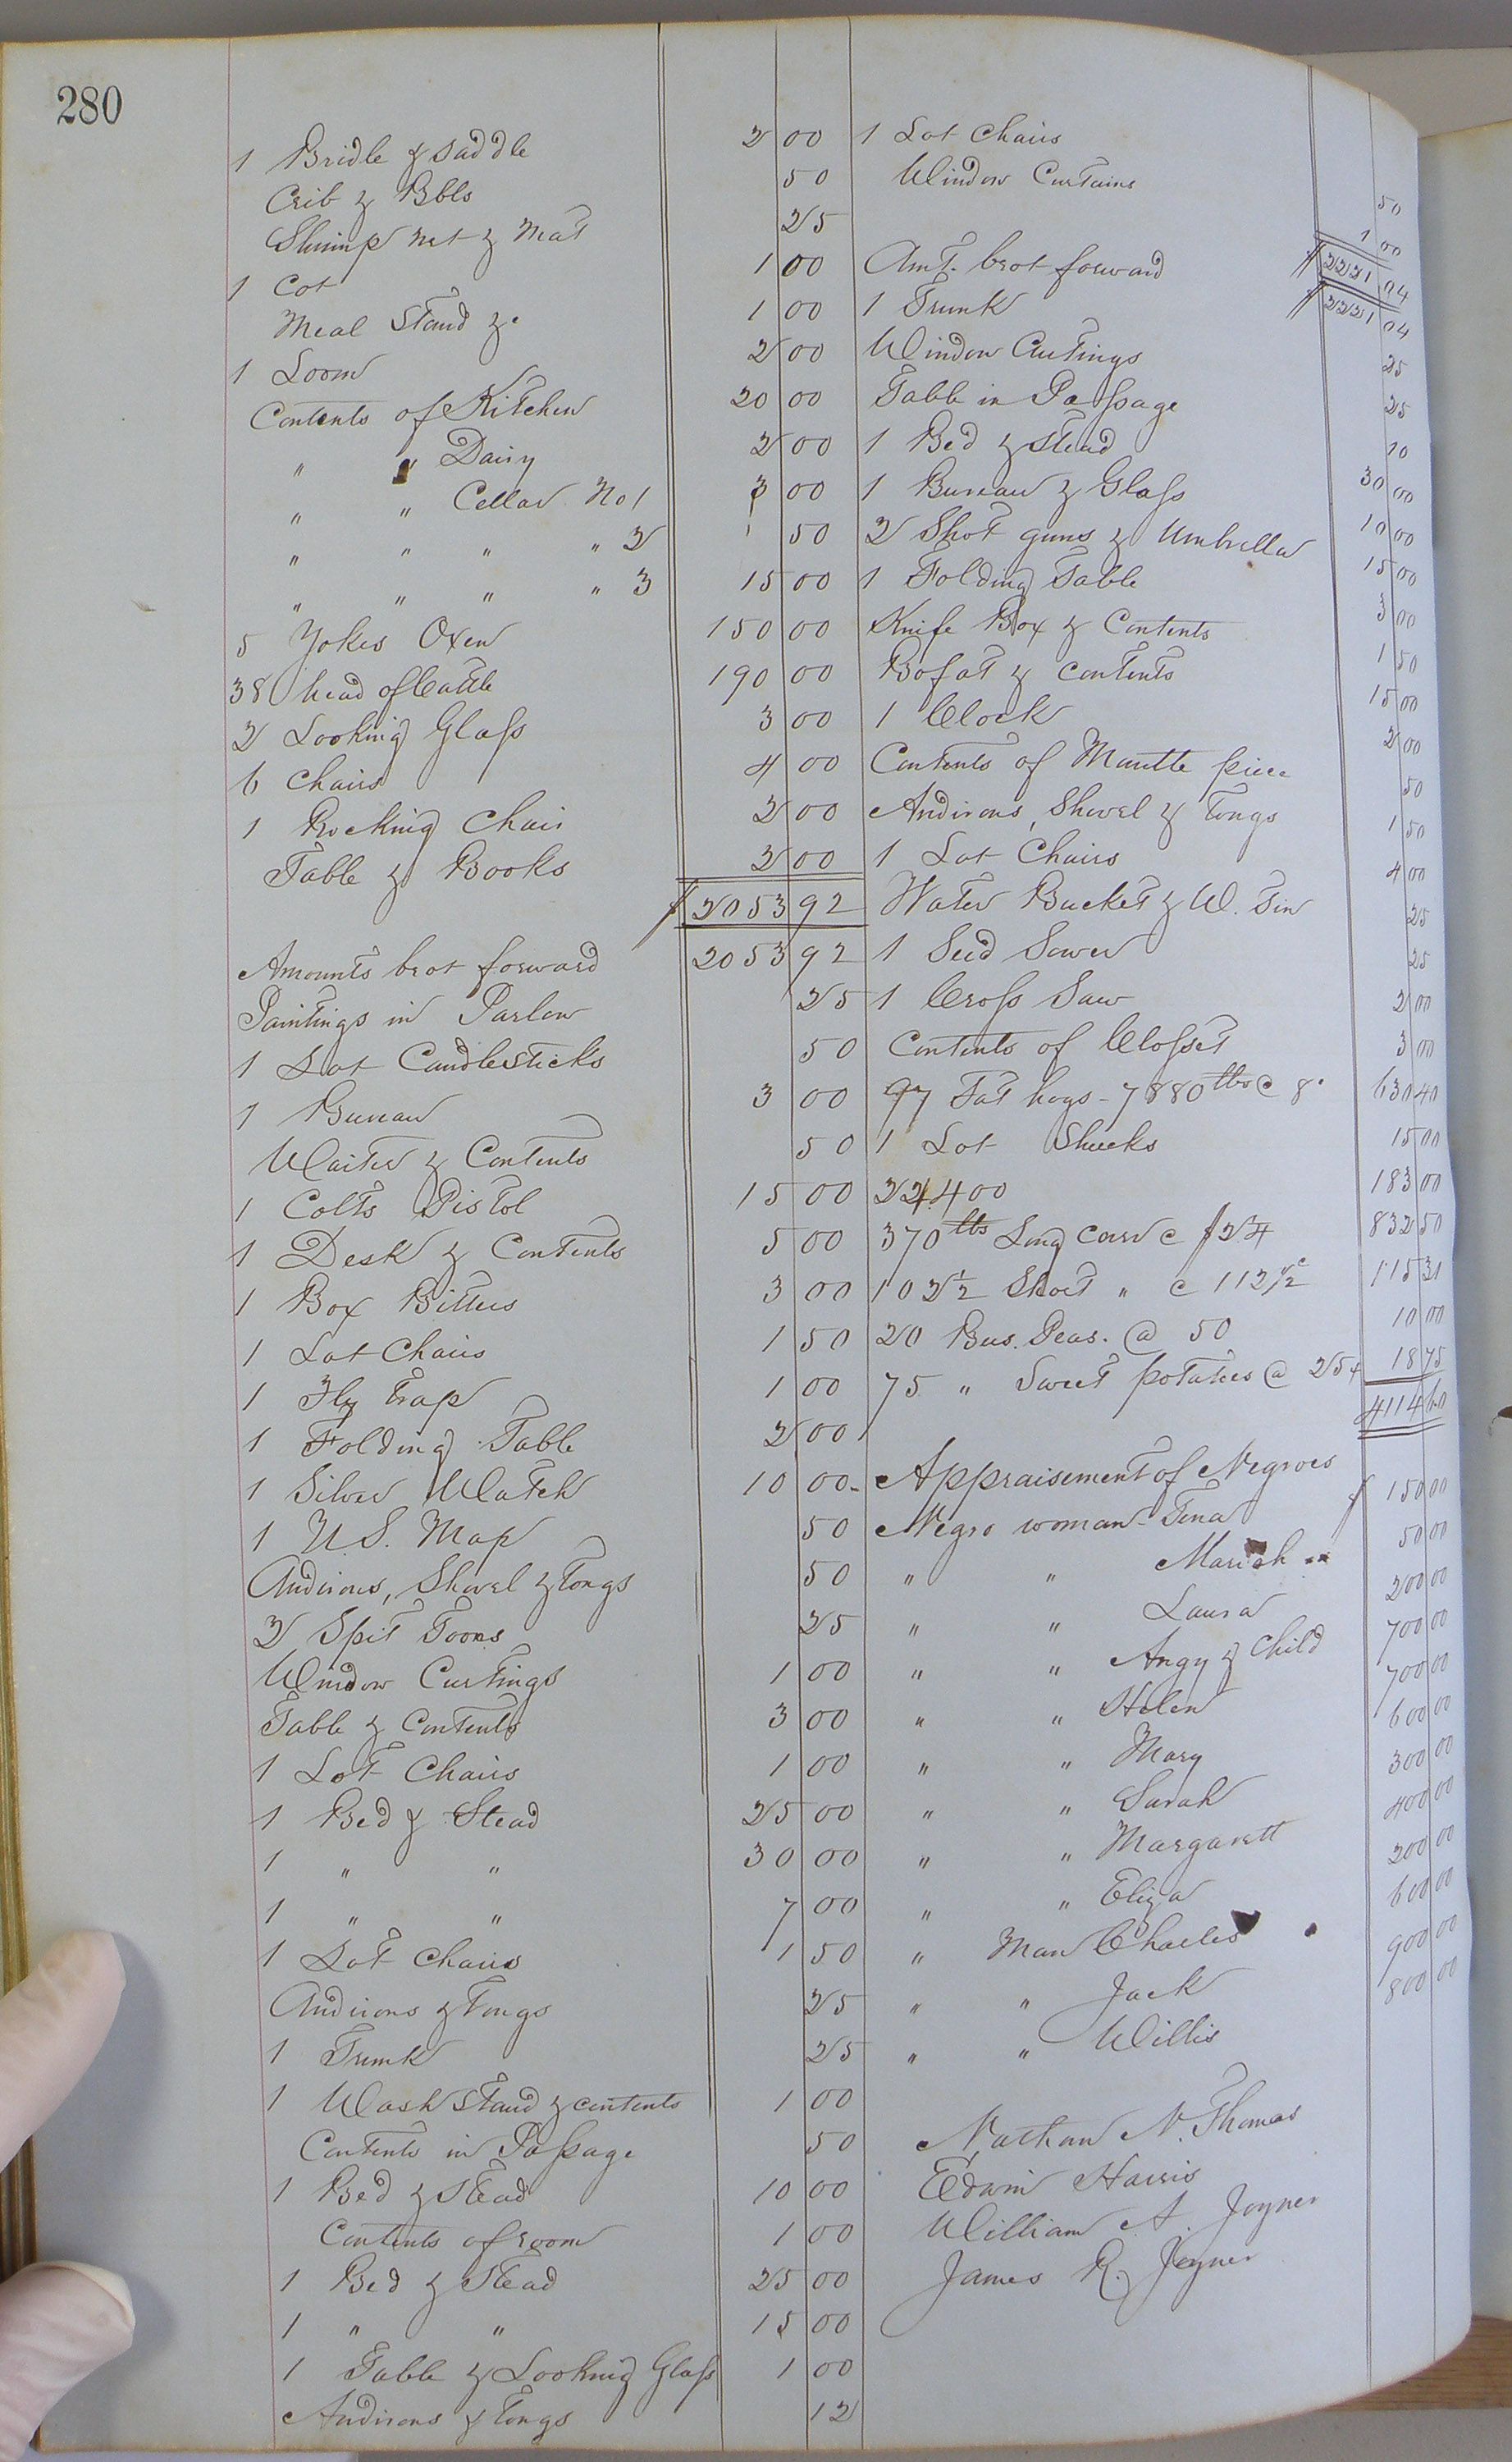 280
1 Bridle & Saddle 2 00
Crib & Bbls 50
Shrimp net & Meat 25
1 Cot 1 00
Meal Stand &c 1 00
1 Loom 2 00
Contents of Kitchen 20 00
" " Dairy 2 00
" " Cellar No 1 3 00
" " " " 2 50
" " " " 3 15 00
5 Yokes Oxen 150 00
38 head of Cattle 190 00
2 Looking Glass 3 00
6 Chairs 4 00
1 Rocking Chair 2 00
Table & Books 2 00
$2053 92
Amounts brot forward 2053 92
Paintings in Parlor 25
1 Lot Candlesticks 50
1 Bureau 3 00
Waiter & Contents 50
1 Colts Pistol 15 00
1 Desk & Contents 5 00
1 Box Bitters 3 00
1 Lot Chairs 1 50
1 Fly Trap 1 00
1 Folding Table 2 00
1 Silver Watch 10 00
1 U.S. Map 50
Andirons, Shovel & Tongs 50
2 Spit Toons 25
Window Curtings 1 00
Table & Contents 3 00
1 Lot Chairs 1 00
1 Bed & Stead 25 00
1 " " 30 00
1 " " 7 00
1 Lot Chairs 1 50
Andirons & Tongs 25
1 Trunk 25
1 Wash Stand & contents 1 00
Contents in Passage 50
1 Bed & Stead 10 00
Contents of room 1 00
1 Bed & Stead 25 00
1 " " 15 00
1 Table & Looking Glass 1 00
Andirons & Tongs 12
1 Lot Chairs 50
Window Curtains 1 00
$2221 04
Amt. brot forward $2221 04
1 Trunk 25
Window Curtings 25
Table in Passage 10
1 Bed & Stead 30 00
1 Bureau & Glass 10 00
2 Shot guns & Umbrella 15 00
1 Folding Table 3 00
Knife Box & Contents 1 50
Bofat & contents 15 00
1 Clock 2 00
Contents of Mantle piece 50
Andirons, Shovel & Tongs 1 50
1 Lot Chairs 4 00
Water Bucket & W. Tin 25
1 Seed Sower 25
1 Cross Saw 2 00
Contents of Closset 3 00
97 Fat hogs - 7880 lbs @ 8c 630 40
1 Lot Shucks 15 00
22400 183 00
370 lbs Long Corn @ $2¼ 832 50
102½ Short " @ 112½c 115 31
20 Bus. Peas. @ 50 10 00
75 " Sweet potatoes @ 25c 18 75
4114 60
Appraisement of Negroes
Negro woman Tina $150 00
" " Mariah 50 00
" " Laura 200 00
" " Angy & Child 700 00
" " Helen 700 00
" " Mary 600 00
" " Sarah 300 00
" " Margarett 400 00
" " Eliza 200 00
" Man Charles 600 00
" " Jack 900 00
" " Willis 800 00
Nathan N. Thomas
Edwin Harris
William A. Joyner
James R. Joyner